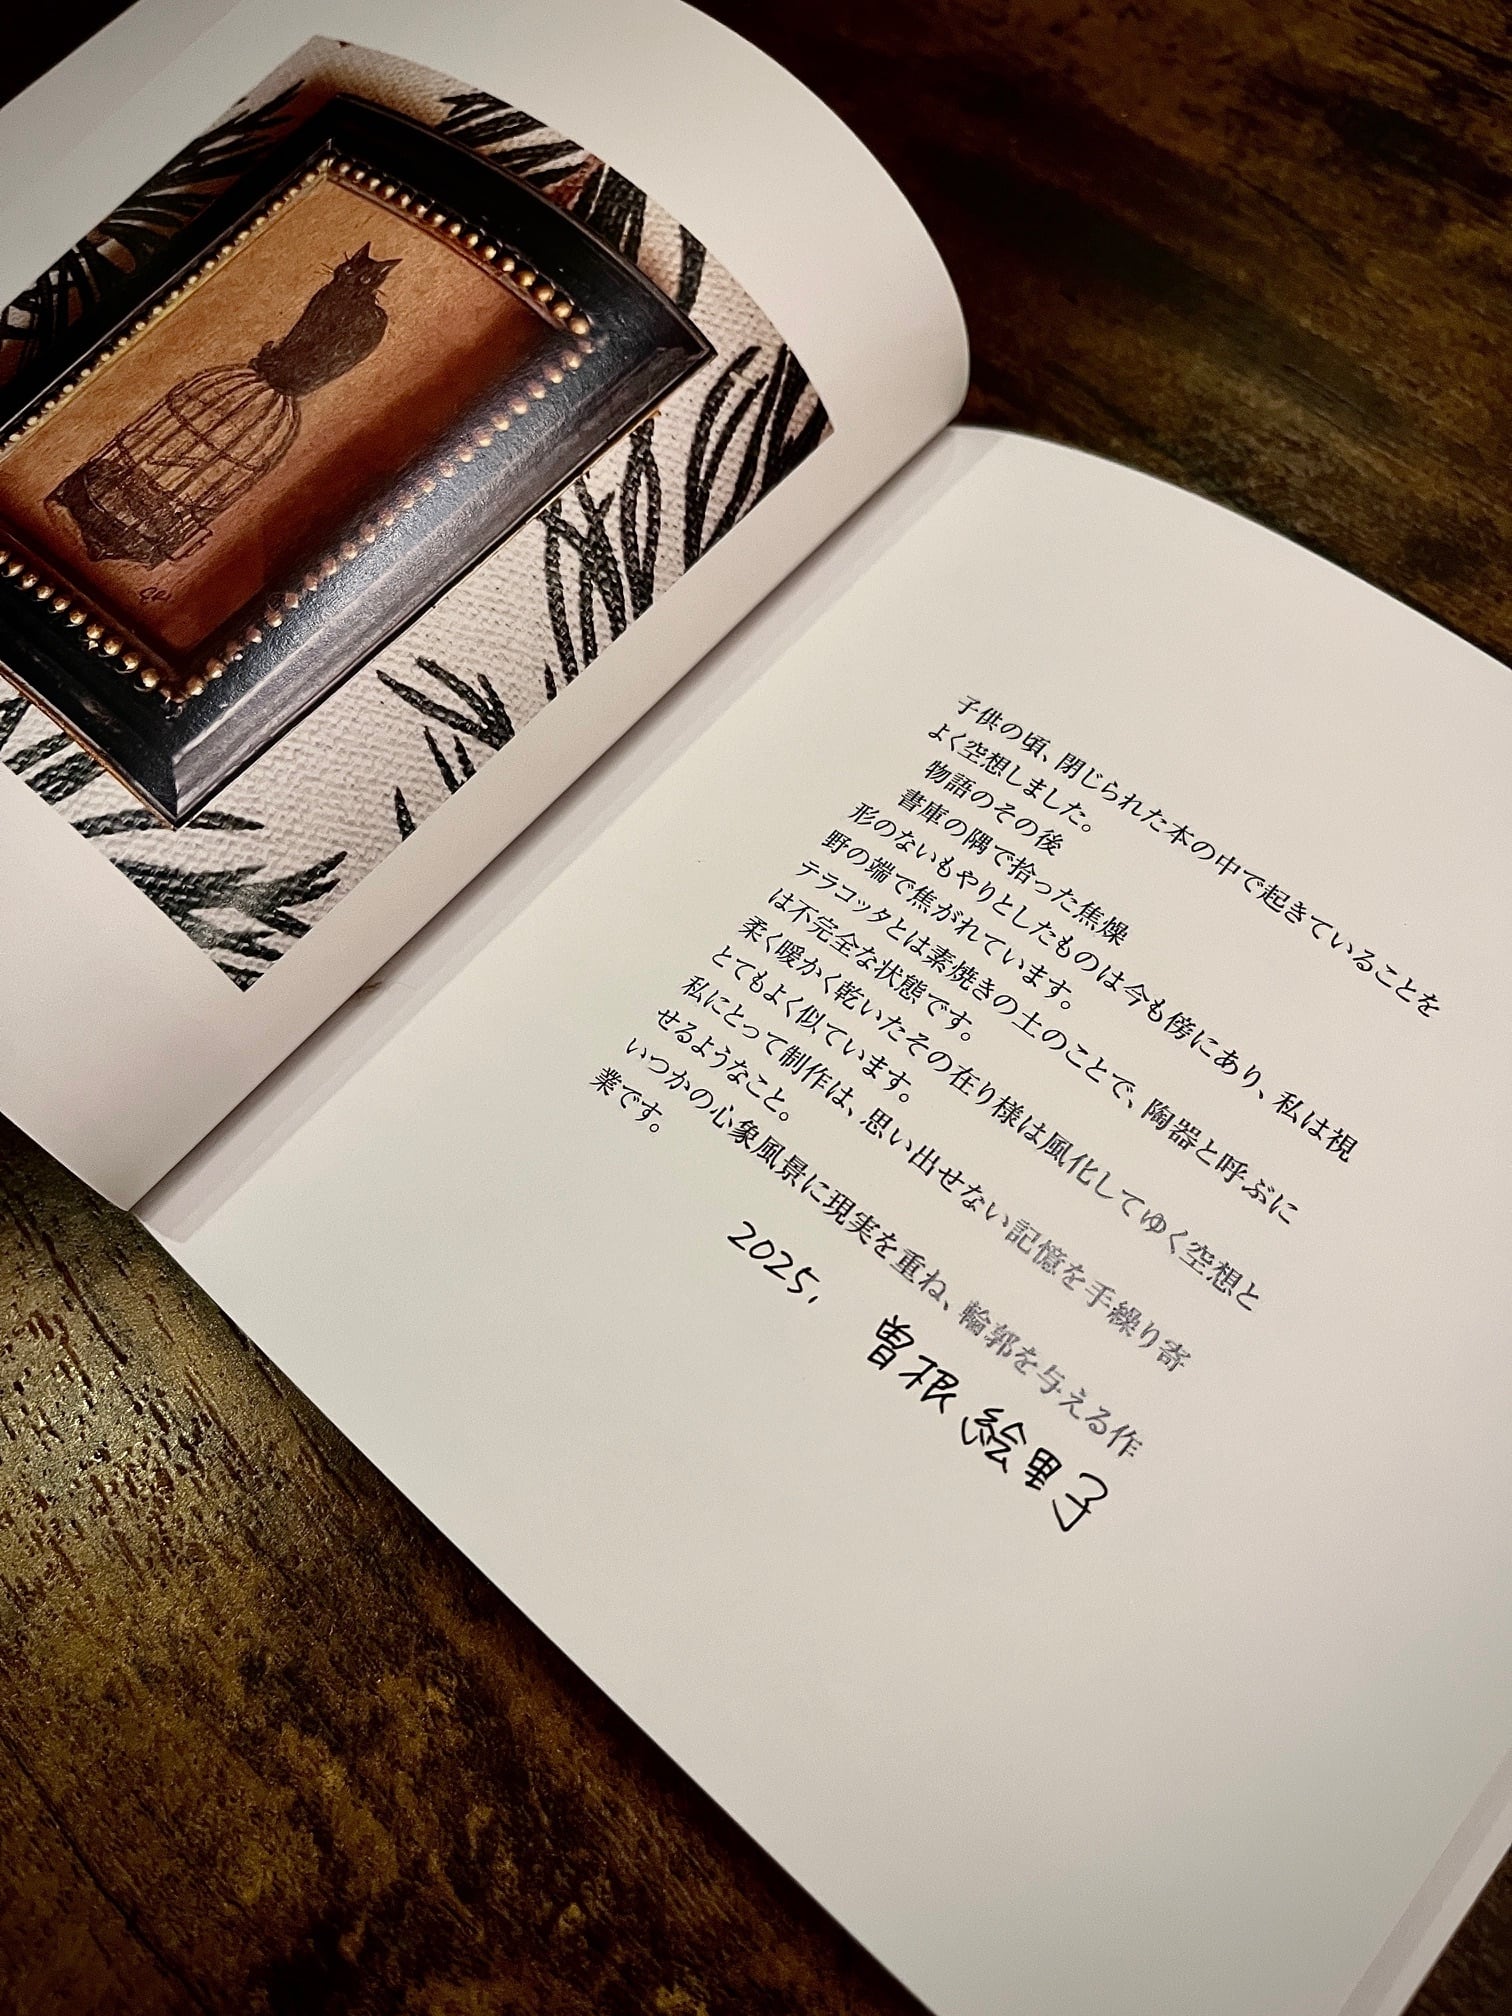 子供の頃、閉じられた本の中で起きていることを
よく空想しました。
物語のその後
書庫の隅で拾った焦燥
形のないもやりとしたものは今も傍にあり、私は視
野の端で焦がれています。
テラコッタとは素焼きの土のことで、陶器と呼ぶに
は不完全な状態です。
柔く暖かく乾いたその在り様は風化してゆく空想と
とてもよく似ています。
私にとって制作は、思い出せない記憶を手繰り寄
せるようなこと。
いつかの心象風景に現実を重ね、輪郭を与える作
業です。
2025,
曽根 絵里子